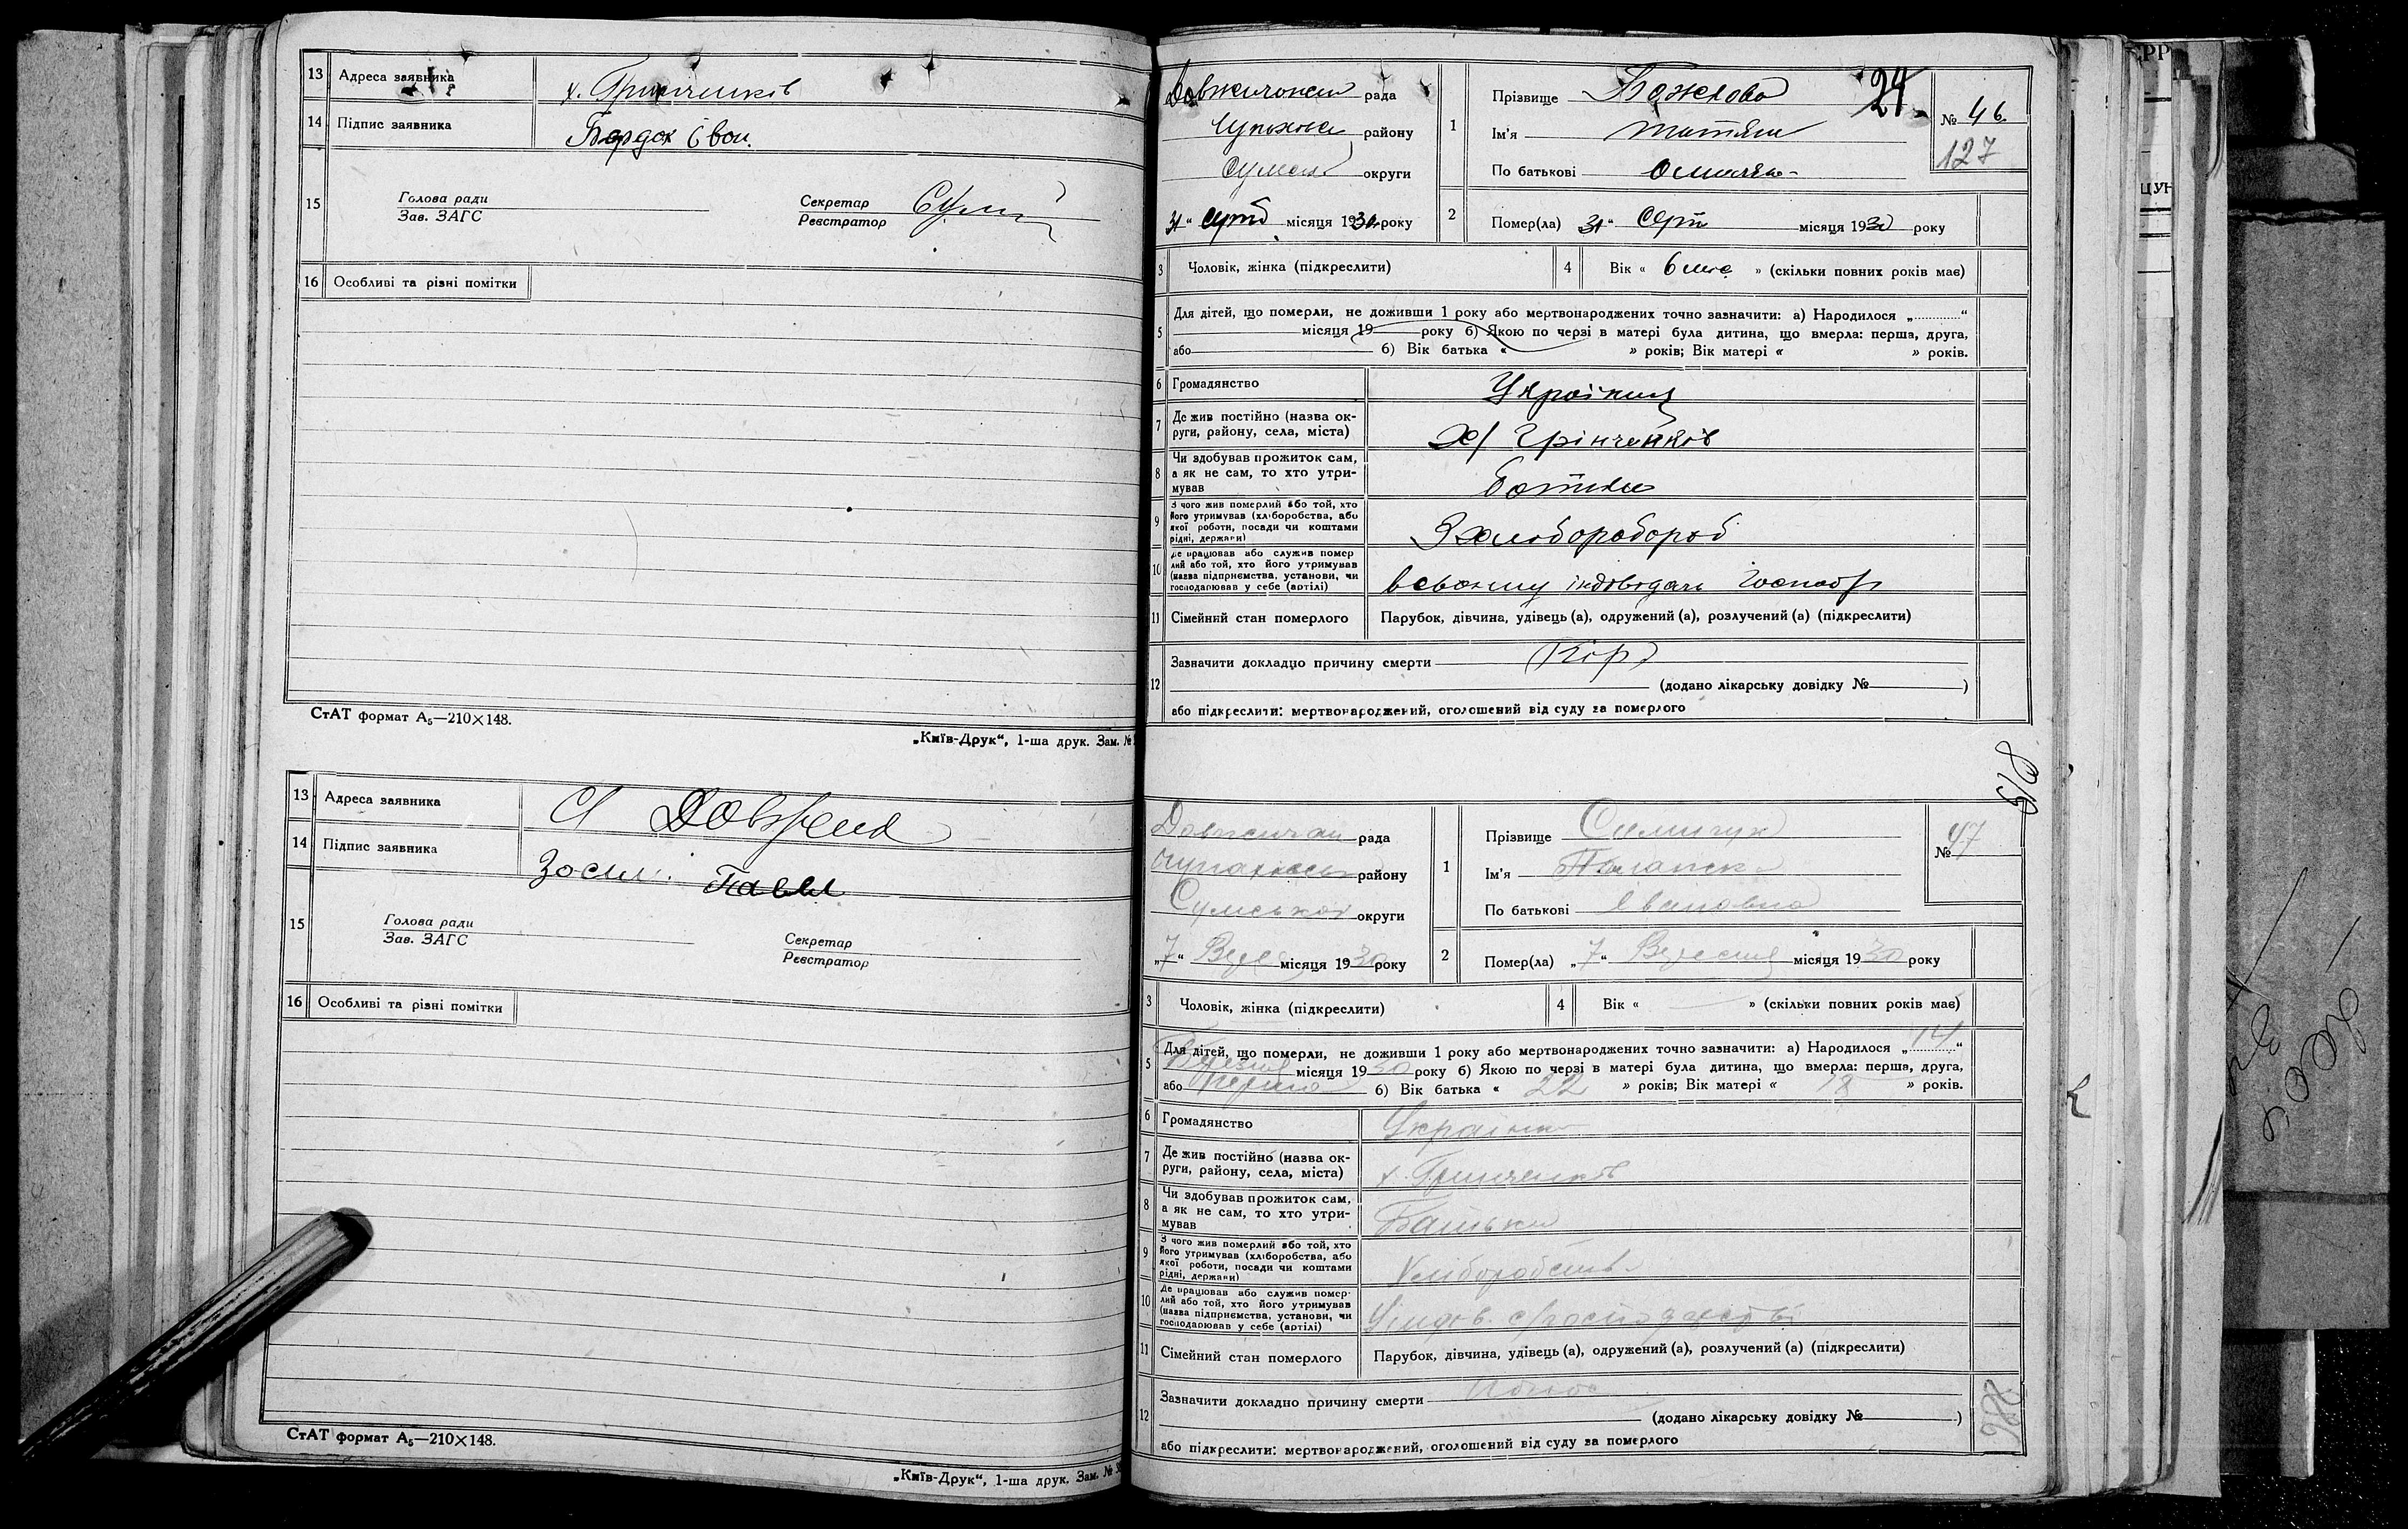 13 Адреса заявника х. Грінченків
14 Підпис заявника Бардак Іван.
15 Голова ради
Зав. ЗАГС
Секретар
Реєстратор
16 Особливі та різні помітки
СтАТ формат А₅—210×148.
„Київ-Друк“, 1-ша друк. Зам. №
13 Адреса заявника С
14 Підпис заявника Павел
15 Голова ради
Зав. ЗАГС
Секретар
Реєстратор
16 Особливі та різні помітки
СтАТ формат А₅—210×148.
„Київ-Друк“, 1-ша друк. Зам. №
рада
району
округи
31 “ серп місяця 1930 року
24.
1 Прізвище
Ім'я
По батькові
№ 46.
127
2 Помер(ла) 31 “ Серп місяця 1930 року
3 Чоловік, жінка (підкреслити)
4 Вік « 6 » (скільки повних років має)
5 Для дітей, що померли, не доживши 1 року або мертвонароджених точно зазначити: а) Народилося „............“
місяця 19 року б) Якою по черзі в матері була дитина, що вмерла: перша, друга,
або 6) Вік батька « » років; Вік матері « » років.
6 Громадянство Українка
7 Де жив постійно (назва округи, району, села, міста) х/ Грінченків
8 Чи здобував прожиток сам,
а як не сам, то хто утри-
мував Батьки
9 З чого жив померлий або той, хто
його утримував (хліборобства, або
якої роботи, посади чи коштами
рідні, держави)
10 Де працював або служив помер
лий або той, хто його утримував
(назва підприємства, установи, чи
господарював у себе (артілі)
11 Сімейний стан померлого Парубок, дівчина, удівець (а), одружений (а), розлучений (а) (підкреслити)
12 Зазначити докладно причину смерти Кір
(додано лікарську довідку № )
або підкреслити: мертвонароджений, оголошений від суду за померлого
рада
району
Сумської округи
„7“ місяця 1930 року
1 Прізвище
Ім'я
По батькові Івановна
№ 47
2 Помер(ла) „7“ Вересня місяця 1930 року
3 Чоловік, жінка (підкреслити)
4 Вік « » (скільки повних років має)
5 Для дітей, що померли, не доживши 1 року або мертвонароджених точно зазначити: а) Народилося „14“
Березня місяця 1930 року б) Якою по черзі в матері була дитина, що вмерла: перша, друга,
або перша 6) Вік батька « 22 » років; Вік матері « 18 » років.
6 Громадянство Українка
7 Де жив постійно (назва ок-
руги, району, села, міста) х. Грінченків
8 Чи здобував прожиток сам,
а як не сам, то хто утри-
мував Батьки
9 З чого жив померлий або той, хто
його утримував (хліборобства, або
якої роботи, посади чи коштами
рідні, держави)
10 Де працював або служив помер-
лий або той, хто його утримував
(назва підприємства, установи, чи
господарював у себе (артілі)
11 Сімейний стан померлого Парубок, дівчина, удівець (а), одружений (а), розлучений (а) (підкреслити)
12 Зазначити докладно причину смерти
(додано лікарську довідку № )
або підкреслити: мертвонароджений, оголошений від суду за померлого